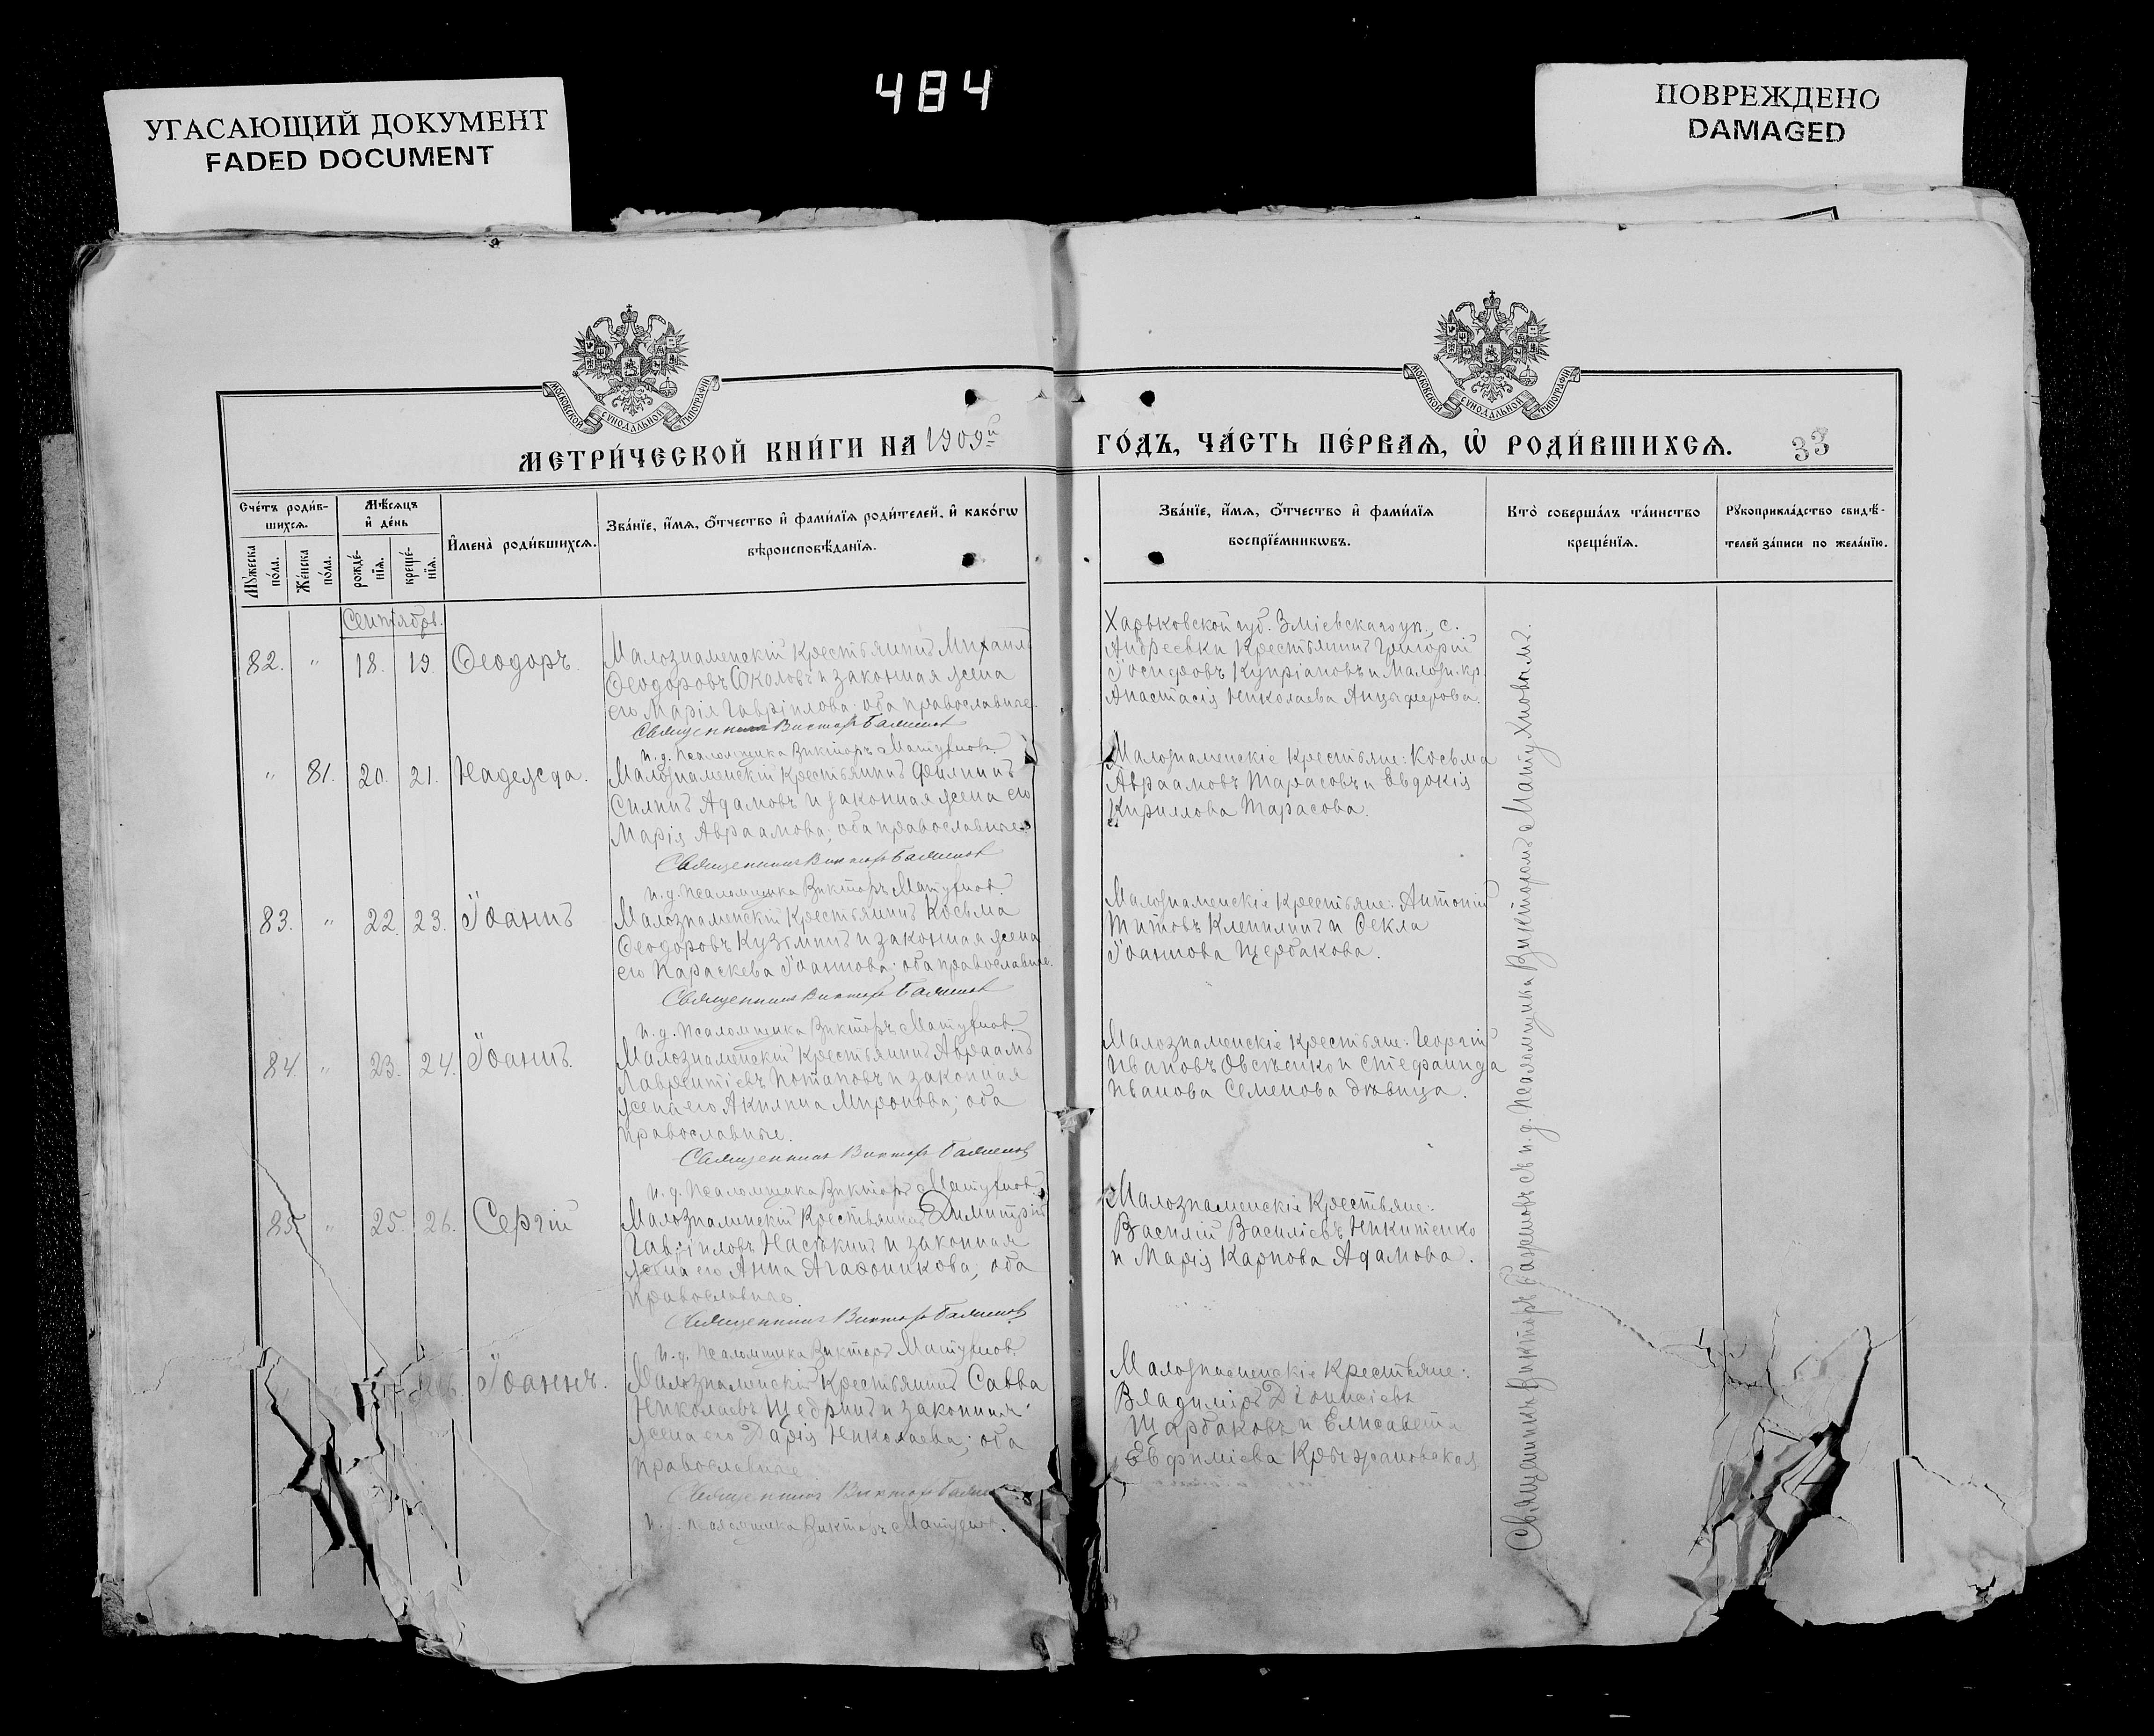 484
УГАСАЮЩИЙ ДОКУМЕНТ
FADED DOCUMENT
ПОВРЕЖДЕНО
DAMAGED
МОСКОВСКОЙ СѴНОДАЛЬНОЙ ТИПОГРАФІИ
МОСКОВСКОЙ СѴНОДАЛЬНОЙ ТИПОГРАФІИ
МЕТРИ́ЧЕСКОЙ КНИ́ГИ НА 1909й
ГО́ДЪ, ЧА́СТЬ ПЕ́РВАѦ, Ѡ҆ РОДИ́ВШИХСѦ. 33
Сче́тъ роди́в-
шихсѧ.
Мѣ́сѧцъ
и҆ де́нь
Мꙋ́жеска
по́ла.
Же́нска
по́ла.
рожде́-
нїѧ.
креще́-
нїѧ.
И҆мена̀ роди́вшихсѧ.
Зва́нїе, и҆́мѧ, ѻ҆́тчество и҆ фами́лїѧ роди́телей, и҆ како́гѡ
вѣроисповѣ́данїѧ.
Зва́нїе, и҆́мѧ, ѻ҆́тчество и҆ фами́лїѧ
воспрїе́мникѡвъ.
Кто̀ соверша́лъ та́инство
креще́нїѧ.
Рꙋкоприкла́дство свидѣ́-
телей за́писи по жела́нїю.
Сентябрь.
82. " 18. 19. Ѳеодоръ.
Малознаменскій крестьянинъ Михаилъ
Ѳеодоровъ Соколовъ и законная жена
его Марія Гавріилова; оба православные.
Священникъ Викторъ Баженов
и. д. псаломщика Викторъ Матухнов.
Харьковской губ. Зміевскаго уп., с.
Андреевки крестьянинъ Григорій
Іосифовъ Купріановъ и Малозн. кр.
Анастасія Николаева Анцыферова.
" 81. 20. 21. Надежда.
Малознаменскій крестьянинъ Филиппъ
Силинъ Адамовъ и законная жена его
Марія Авраамова; оба православные.
Священникъ Викторъ Баженов
и. д. псаломщика Викторъ Матухнов.
Малознаменскіе крестьяне: Косьма
Авраамовъ Тарасовъ и Евдокія
Кириллова Тарасова.
83. " 22. 23. Іоаннъ
Малознаменскій крестьянинъ Косьма
Ѳеодоровъ Кузьминъ и законная жена
его Параскева Іоаннова; оба православные.
Священникъ Викторъ Баженов
и. д. псаломщика Викторъ Матухнов.
Малознаменскіе крестьяне: Антоній
Титовъ Клепилинъ и Ѳекла
Іоаннова Щербакова.
84. " 23. 24. Іоаннъ.
Малознаменскій крестьянинъ Авраамъ
Лаврентіевъ Потаповъ и законная
жена его Акилина Миронова; оба
православные.
Священникъ Викторъ Баженов
и. д. псаломщика Викторъ Матухнов.
Малознаменскіе крестьяне: Георгій
Ивановъ Овсѣенко и Стефанида
Иванова Семенова дѣвица.
85. " 25. 26. Сергій
Малознаменскій крестьянинъ Димитрій
Гавріиловъ Насѣкинъ и законная
жена его Анна Агаѳоникова; оба
православные.
Священникъ Викторъ Баженов
и. д. псаломщика Викторъ Матухнов.
Малознаменскіе крестьяне:
Василій Василіевъ Никитенко
и Марія Карпова Адамова.
26. Іоаннъ.
Малознаменскій крестьянинъ Савва
Николаевъ Щедринъ и законная
жена его Дарія Николаева; оба
православные
Священникъ Викторъ
и. д. псаломщика Викторъ Матухнов.
Малознаменскіе крестьяне:
Владиміръ Діонисіевъ
Щербаковъ и Елисавета
Евфиміева Крыжановская
Священникъ Викторъ Баженовъ съ и. д. псаломщика Викторомъ Матухновымъ.